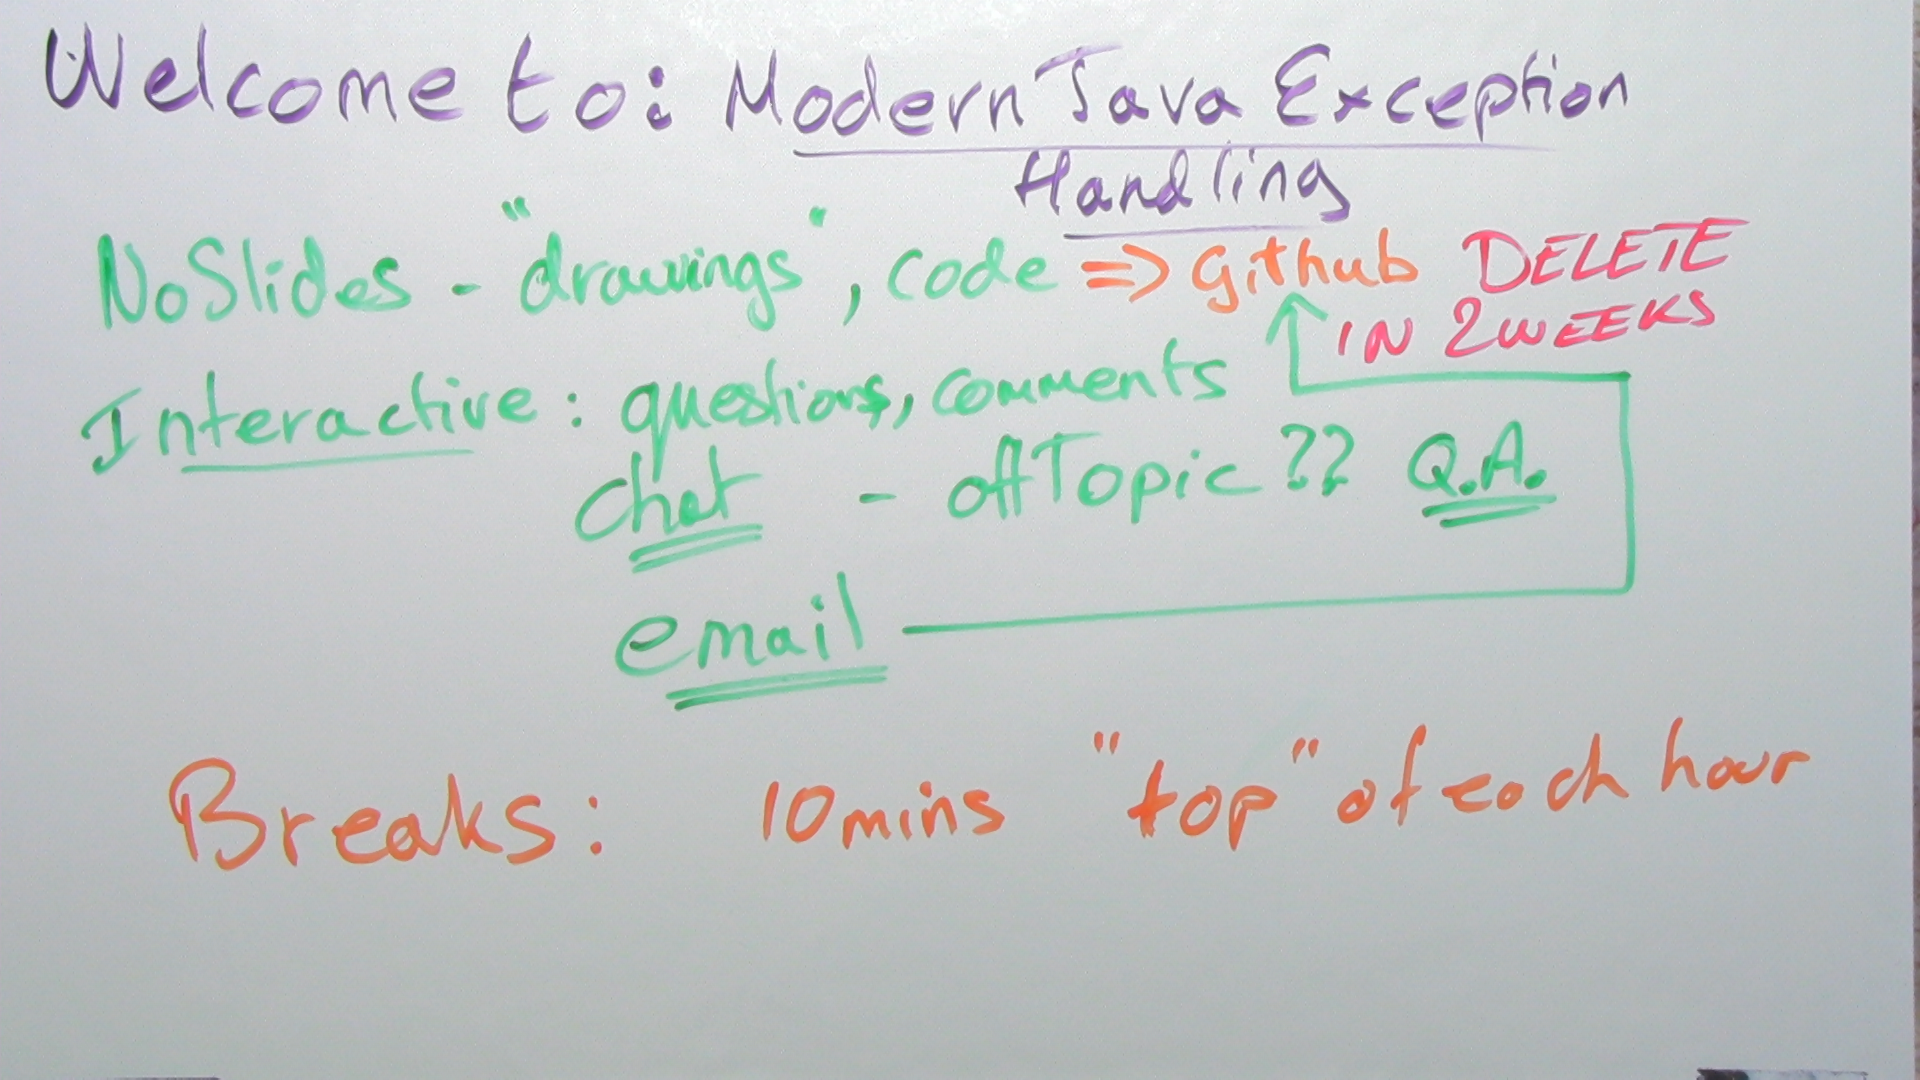 Welcome to: Modern Java Exception
Handling
NoSlides - "drawings", code => Github DELETE
IN 2 WEEKS
Interactive: questions, comments
chat - offTopic?? Q.A.
email
Breaks: 10mins "top" of each hour